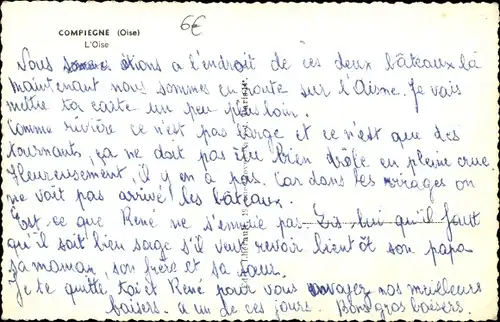 6€
COMPIEGNE (Oise)
L'Oise
Nous sommes étions a l'endroit de ces deux bâteaux là
maintenant nous sommes en route sur l'Aisne. Je vais
mettre ta carte un peu plus loin.
Comme rivière ce n'est pas large et ce n'est que des
tournants, ça ne doit pas être bien drôle en pleine crue
Heureusement, il y en a pas. Car dans les virages on
ne voit pas arrivé les bâteaux.
Est ce que René ne s'ennuie pas. Dis lui qu'il faut
qu'il soit bien sage s'il veut revoir bientôt son papa
sa maman, son frère et sa sœur.
Je te quitte toi et René pour vous envoyez nos meilleurs
baisers. a un de ces jours. Bons gros baisers.